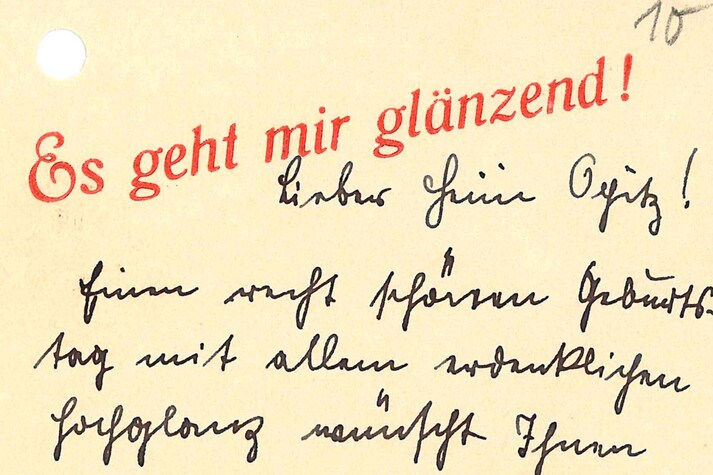 10
Es geht mir glänzend!
Lieber Heini Opitz!
Einen recht schönen Geburts-
tag mit allem erdenklichen
Hochglanz wünscht Ihnen